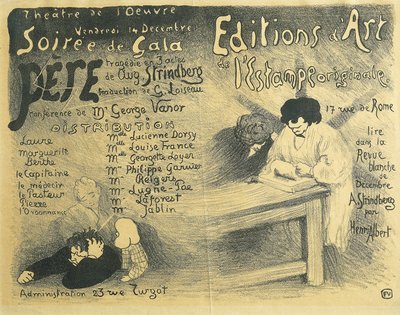 Théâtre de l'Oeuvre
Vendredi 14 Décembre
Soirée de Gala
PÈRE
tragédie en 3 actes
de Aug. Strindberg
traduction de G. Loiseau
conférence de Mr George Vanor
DISTRIBUTION
Laure Mlle Lucienne Dorsy
Marguerite Mlle Louise France
Berthe Mlle Georgette Loyer
le Capitaine Mr Philippe Garnier
le médecin Mr Relgers
le Pasteur Mr Lugné-Poe
Pierre Mr Laforest
l'Ordonnance Mr Jablin
Administration 23 rue Turgot
Editions d'Art
de l'Estampe originale
17 rue de Rome
lire
dans la
Revue
blanche
de
Décembre
A Strindberg
par
Henri Albert
FV